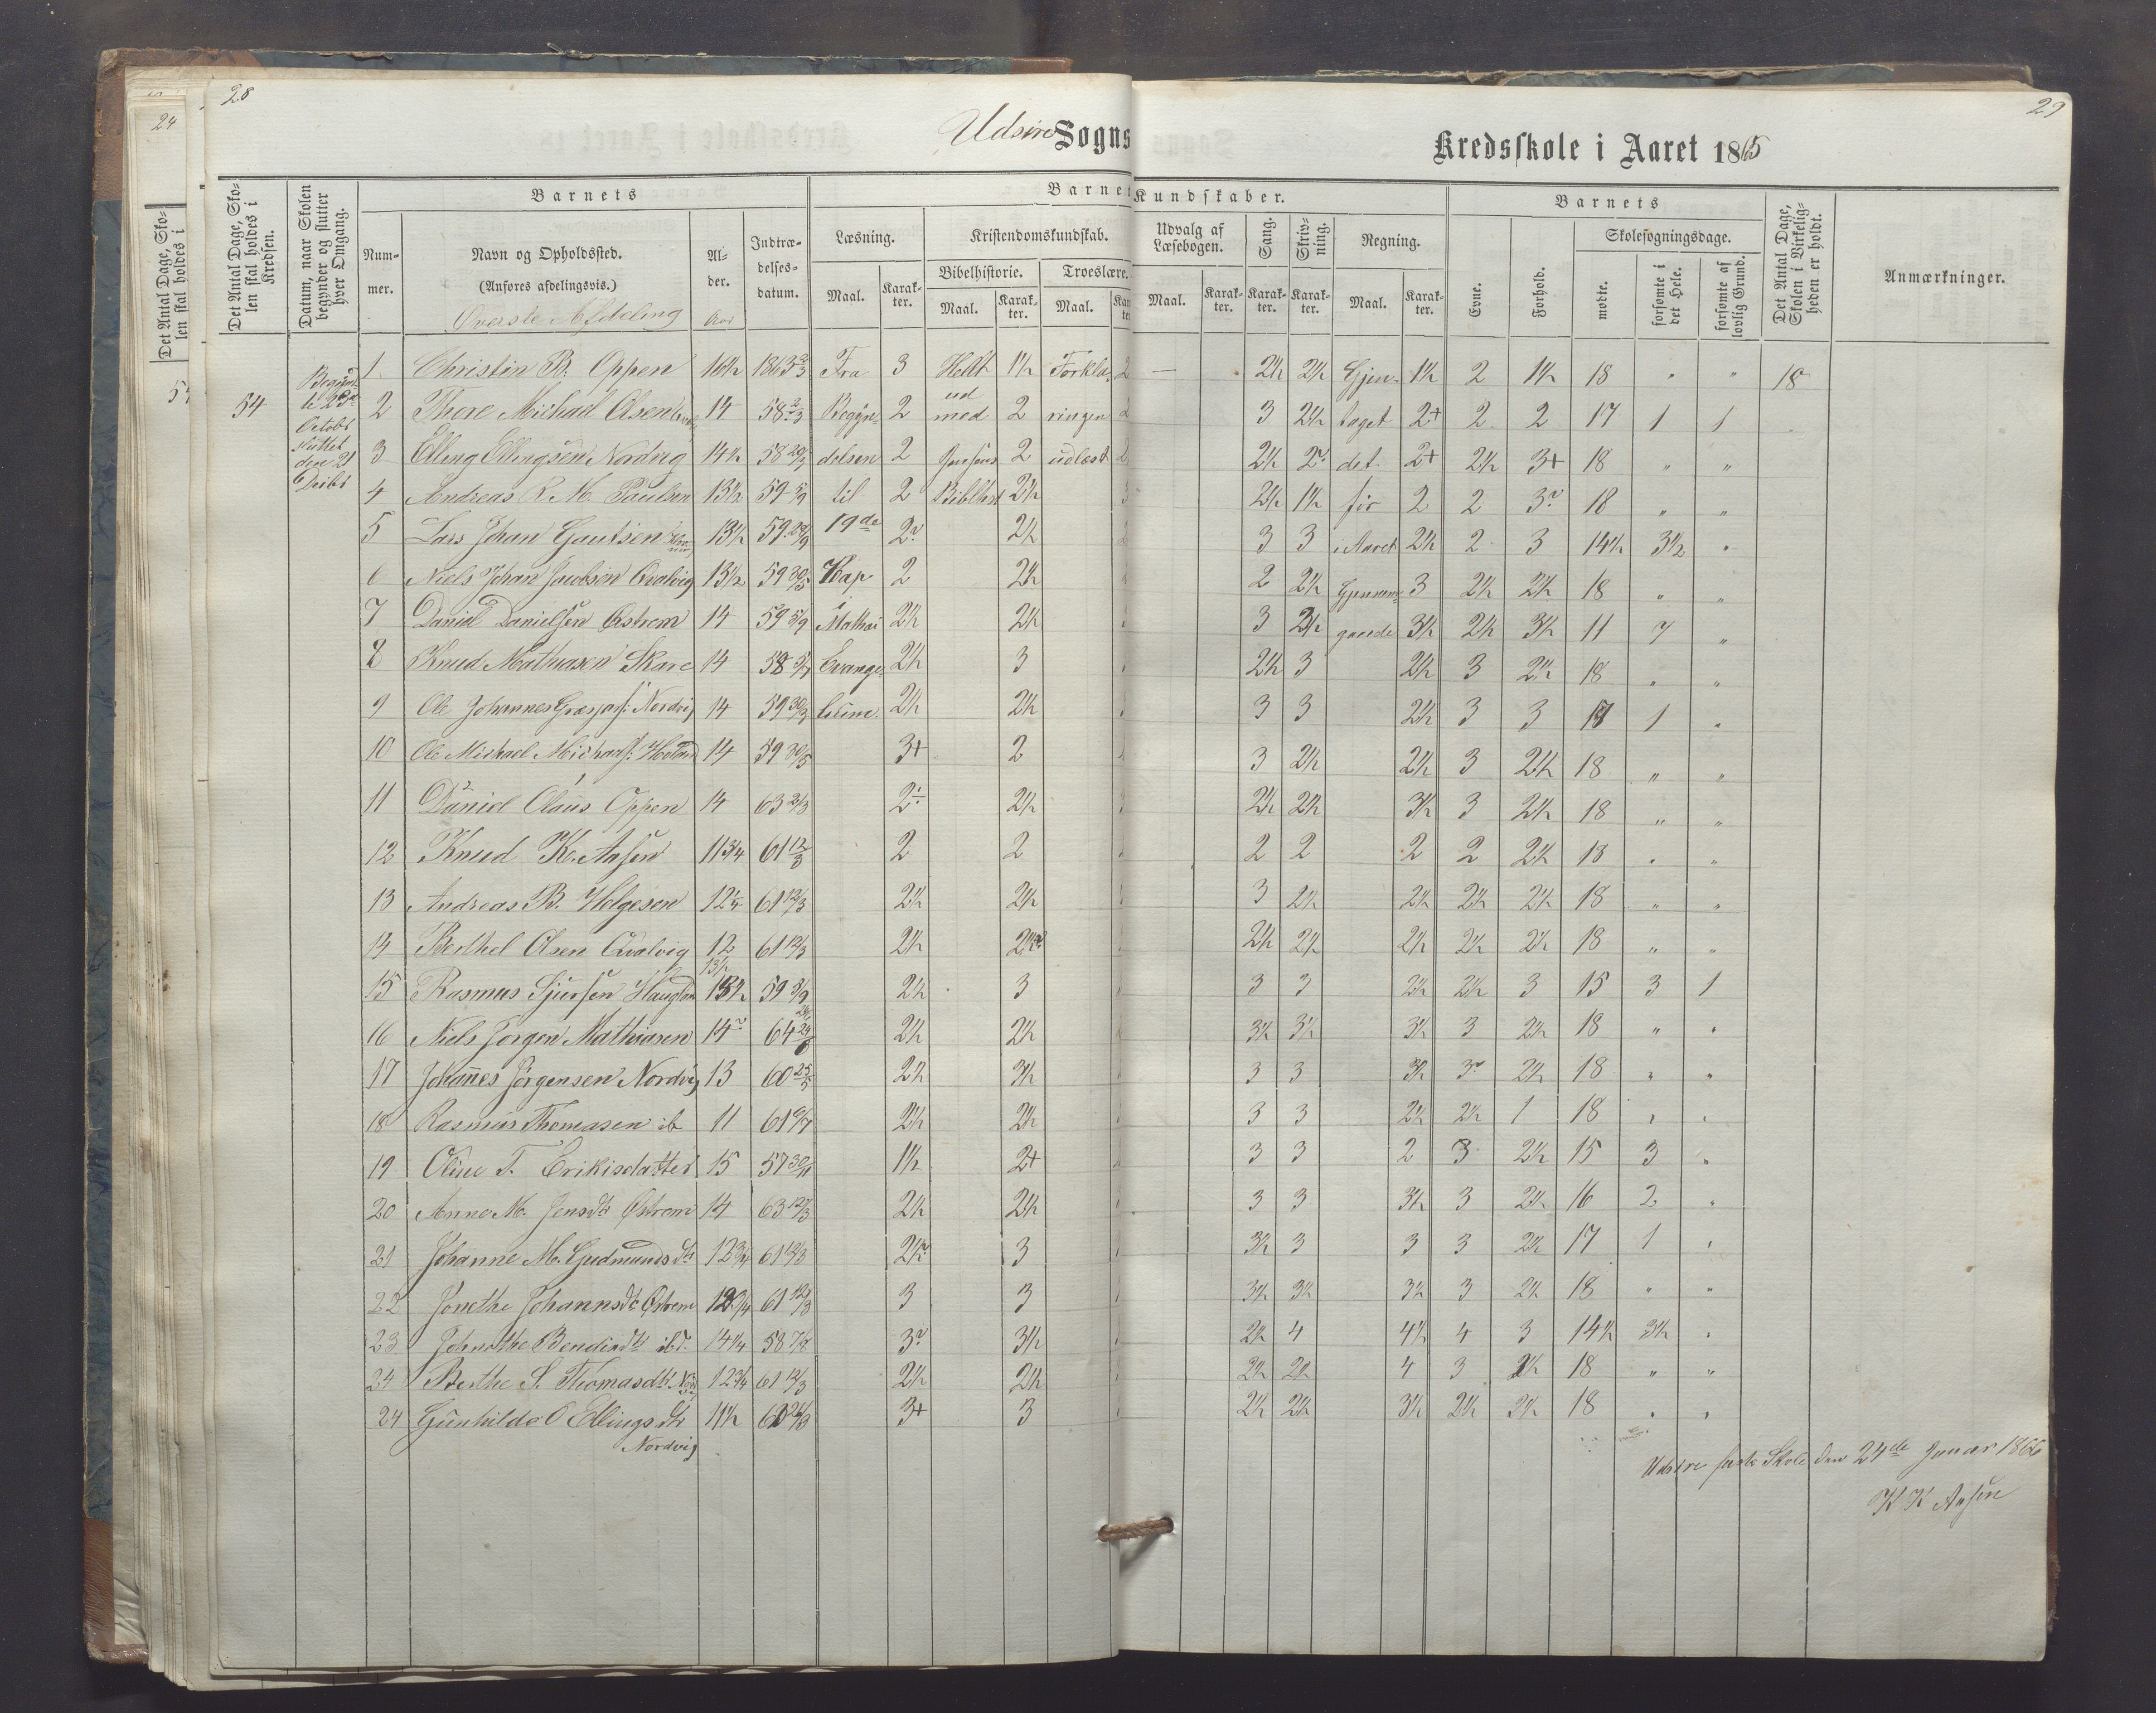 28
29
24
Udsire Sogns
Kredsskole i Aaret 1865
Det Antal Dage, Skolen skal holdes i
Det Antal Dage, Skolen skal holdes i Kredsen.
Datum, naar Skolen begynder og slutter hver Omgang.
Barnets
Nummer.
Navn og Opholdssted.
(Anføres afdelingsvis.)
Øverste Afdeling
Alder.
Aar
Indtrædelsesdatum.
Barnets Kundskaber.
Læsning.
Maal. Karakter.
Kristendomskundskab.
Bibelhistorie. Troeslære.
Maal. Karakter. Maal.
Udvalg af Læsebogen.
Maal. Karakter.
Sang. Karakter.
Skrivning. Karakter.
Regning.
Maal. Karakter.
Barnets
Evne. Forhold.
Skolesøgningsdage.
mødte. forsømte i det Hele. forsømte af lovlig Grund.
Det Antal Dage, Skolen i Virkeligheden er holdt.
Anmærkninger.
54
1 Christin B. Oppen 16½ 1863 Fra 3 Helt 1½ Forkla- 2 — 2½ 2½ Gjen- 1½ 2 1½ 18 " " 18
2 Thore Michael Olsen 14 58 Begyn- 2 ud med 2 ringen 3 2½ taget 2+ 2 2 17 1 1
3 Elling Ellingsen Nordvig 14½ 58 delsen 2 2 udlæst 2½ 2 det 2+ 2½ 3+ 18 " "
4 Andreas R. M. Paulsen 13½ 59 til 2 Biblhist 2½ 2½ 1½ før 2 2 3 18 " "
5 Lars Johan Gautsen 13½ 59 19de 2 2½ 3 3 i Aaret 2½ 2 3 14½ 3½ "
6 Niels Johan Jacobsen Qvalvig 13½ 59 30/5 Kap 2 2½ 2 2½ 3 2½ 2½ 18 " "
7 Daniel Danielsen Østrem 14 59 i Mathæi 2½ 2½ 3 3½ gaaende 3½ 2½ 3½ 11 7 "
8 Knud Mathiasen Skare 14 58 Evange- 2½ 3 2½ 3 2½ 3 2½ 18 " "
9 Ole Johannes Nordvig 14 59 lium. 2½ 2½ 3 3 2½ 3 3 17 1 "
10 Ole Michael Michaels: 14 59 30/5 3+ 2 3 2½ 2½ 3 2½ 18 " "
11 Daniel Olaus Oppen 14 63 2 2½ 2½ 2½ 3½ 3 2½ 18 " "
12 Knud K. Aasen 11¾ 61 2 2 2 2 2 2 2½ 18 " "
13 Andreas B. Helgesen 12¼ 61 12/3 2½ 2½ 3 2½ 2½ 2½ 2½ 18 " "
14 Berthel Olsen Qvalvig 12 61 12/3 2½ 2½ 2½ 2½ 2½ 2½ 2½ 18 " "
15 Rasmus Sjursen 13½ 59 2½ 3 3 3 2½ 2½ 3 15 3 1
16 Niels Jørgen Mathiasen 14 64 2½ 2½ 3½ 3½ 3½ 3 2½ 18 " "
17 Johannes Jørgensen Nordvig 13 60 25/5 2½ 3½ 3 3 3½ 3 2½ 18 " "
18 Rasmus Thomasen ib 11 61 2½ 2½ 3 3 2½ 2½ 1 18 " "
19 Oline T. Eriksdatter 15 57 30/11 1½ 2+ 3 3 2 3 2½ 15 3 "
20 Anne M. Jensdtr Østrem 14 63 2½ 2½ 3 3 3½ 3 2½ 16 2 "
21 Johanne M. Gudmundsdtr 12¾ 61 12/3 2½ 3 3½ 3 3 3 2½ 17 1 "
22 Jonethe Johannsdtr Østrem 12¾ 61 12/3 3 3 3½ 3½ 3½ 3 2½ 18 " "
23 Bendixdtr ibd. 14¼ 58 7/8 3 3½ 2½ 4 4½ 4 3 14½ 3½ "
24 Berthe S. Thomasdtr 12¾ 61 12/3 2½ 2½ 2½ 2½ 4 3 2½ 18 " "
24 Gunhilde O Ellingsdtr 11½ 3+ 3 2½ 2½ 3½ 2½ 2½ 18 " "
Nordvig
Udsire faste Skole den 24de Januar 1866
K K Aasen